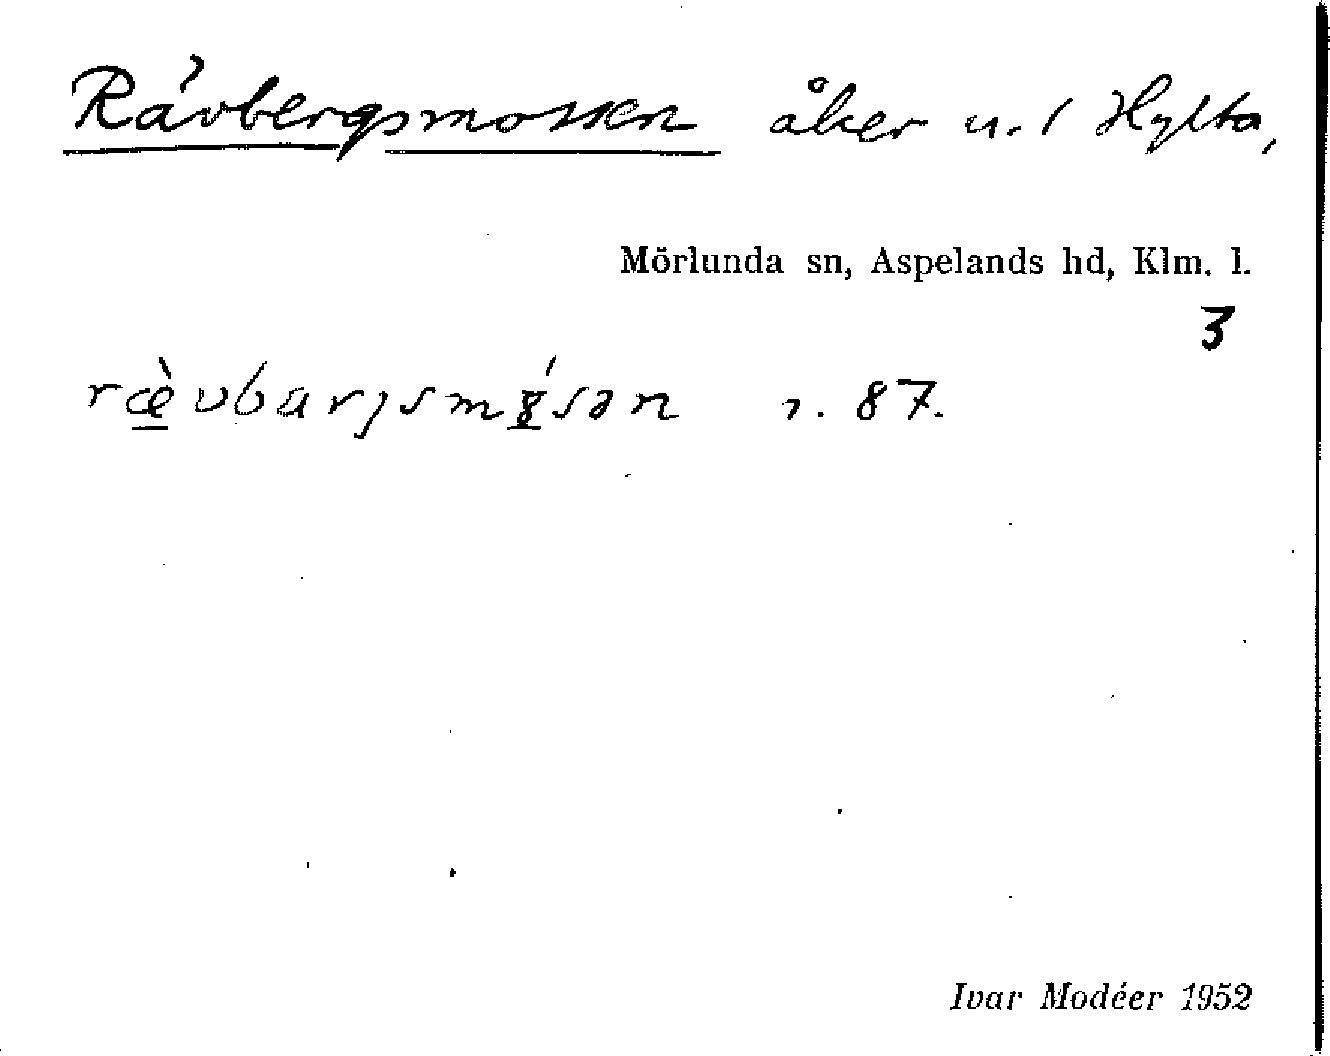 Rävbergsmossen åker u. 1 Hylta,
Mörlunda sn, Aspelands hd, Klm. l.
3
87.
Ivar Modéer 1952